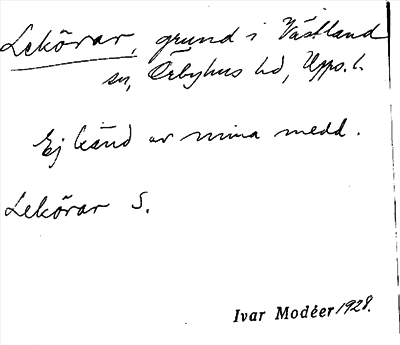 Lekörar, grund i Västland
sn, Örbyhus hd, Upps. l.
Ej känd av mina medd.
Lekörar S.
Ivar Modéer 1928.